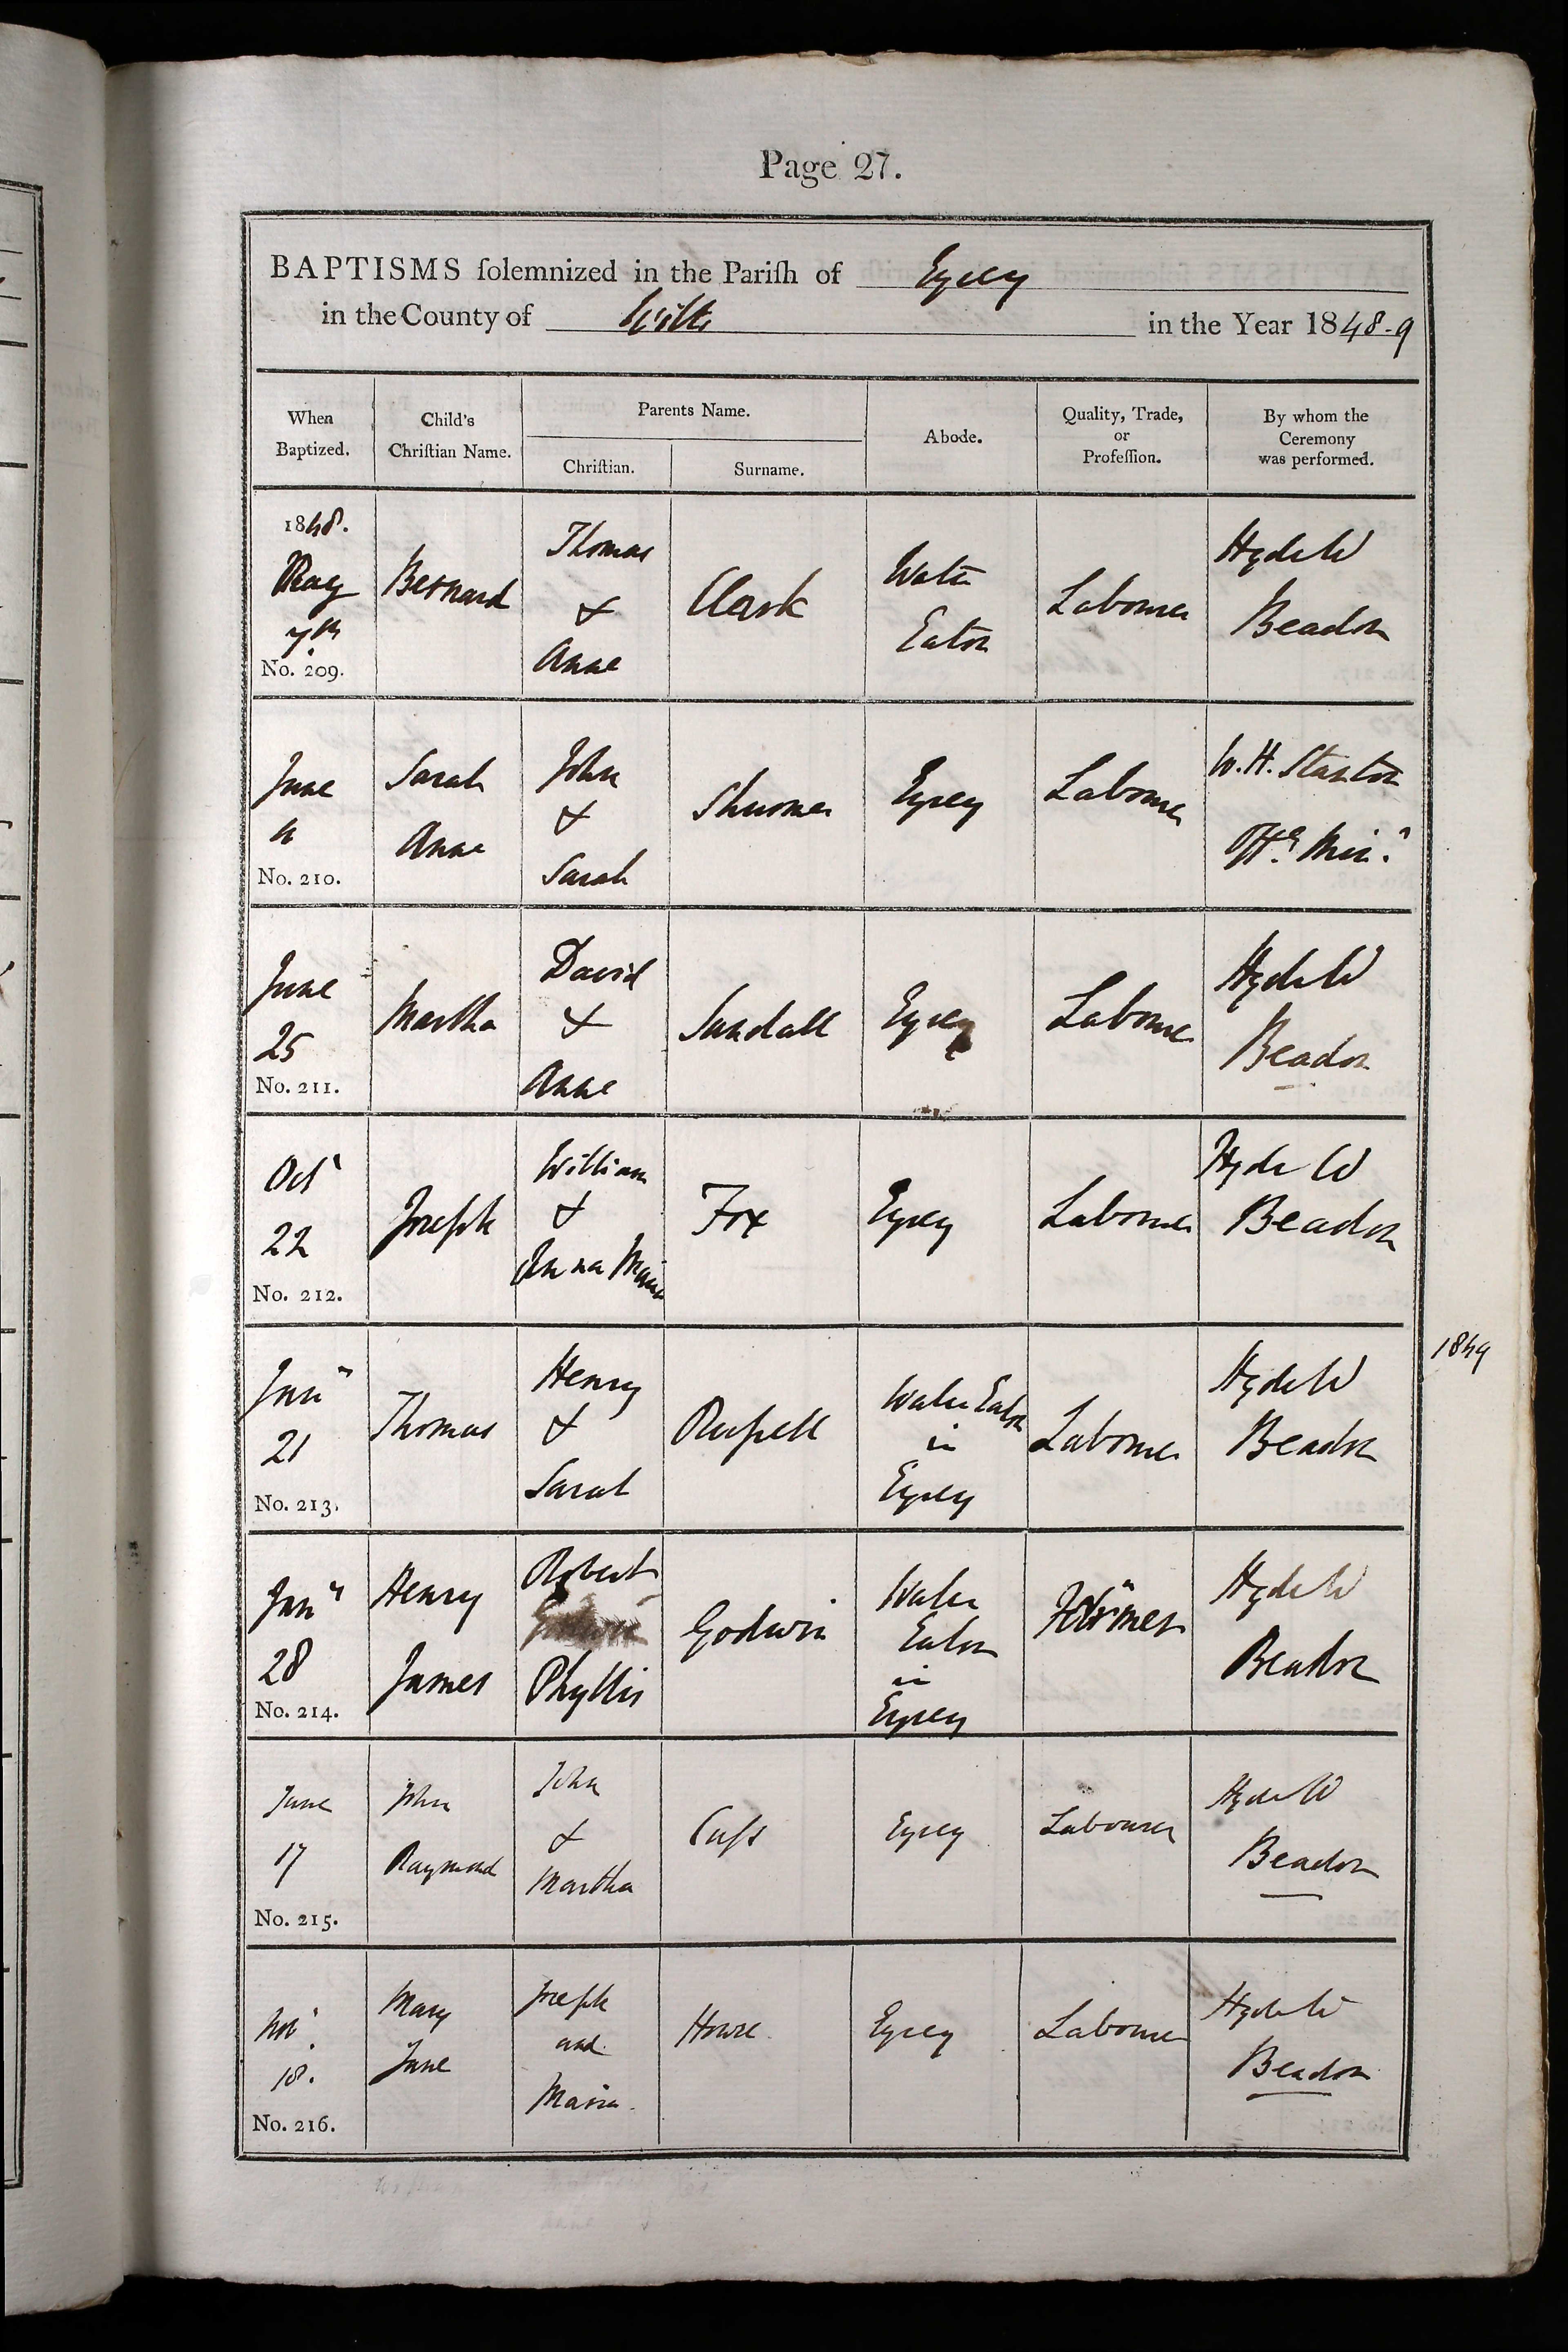 Page 27.
BAPTISMS ſolemnized in the Pariſh of Eysey
in the County of Wilts in the Year 1848-9
When Baptized. Child's Chriſtian Name. Parents Name. Abode. Quality, Trade, or Profeſſion. By whom the Ceremony was performed.
Chriſtian. Surname.
1848.
May
7th
No. 209.
Bernard
Thomas
&
Anne
Clark
Water
Eaton
Labourer
Hyde W
Beadon
June
No. 210.
Sarah
Anne
John
&
Sarah
Eysey
Labourer
W. H. Stanton
Offg Minr
June
25
No. 211.
Martha
David
&
Anne
Eysey
Labourer
Hyde W
Beadon
Octr
22
No. 212.
Joseph
William
&
Anna Maria
Fox
Eysey
Labourer
Hyde W
Beadon
1849
Jany
21
No. 213.
Thomas
Henry
&
Sarah
Ruſsell
Water Eaton
in
Eysey
Labourer
Hyde W
Beadon
Jany
28
No. 214.
Henry
James
Robert
Phyllis
Godwin
Water
Eaton
in
Eysey
Farmer
Hyde W
Beadon
June
17
No. 215.
John
Raymond
John
&
Martha
Cuſs
Eysey
Labourer
Hyde W
Beadon
Novr
18.
No. 216.
Mary
Jane
Joseph
and
Maria.
Howse
Eysey
Labourer
Hyde W
Beadon